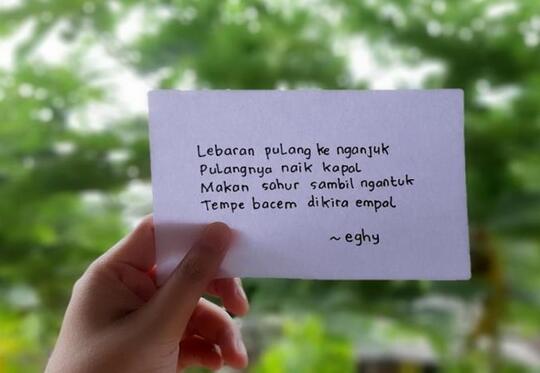 Lebaran pulang ke nganjuk
Pulangnya naik kapal
Makan sahur sambil ngantuk
Tempe bacem dikira empal
~eghy